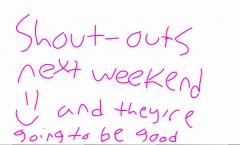 Shout-outs
next weekend
=) and they're
going to be good